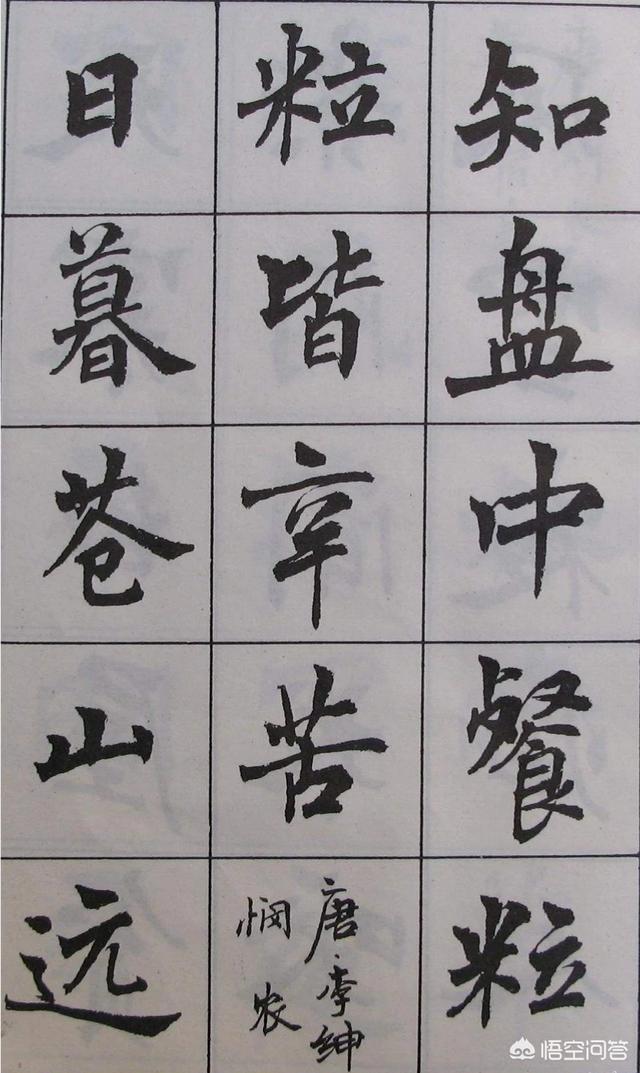 知盘中餐粒
粒皆辛苦
唐·李绅
悯农
日暮苍山远
悟空问答